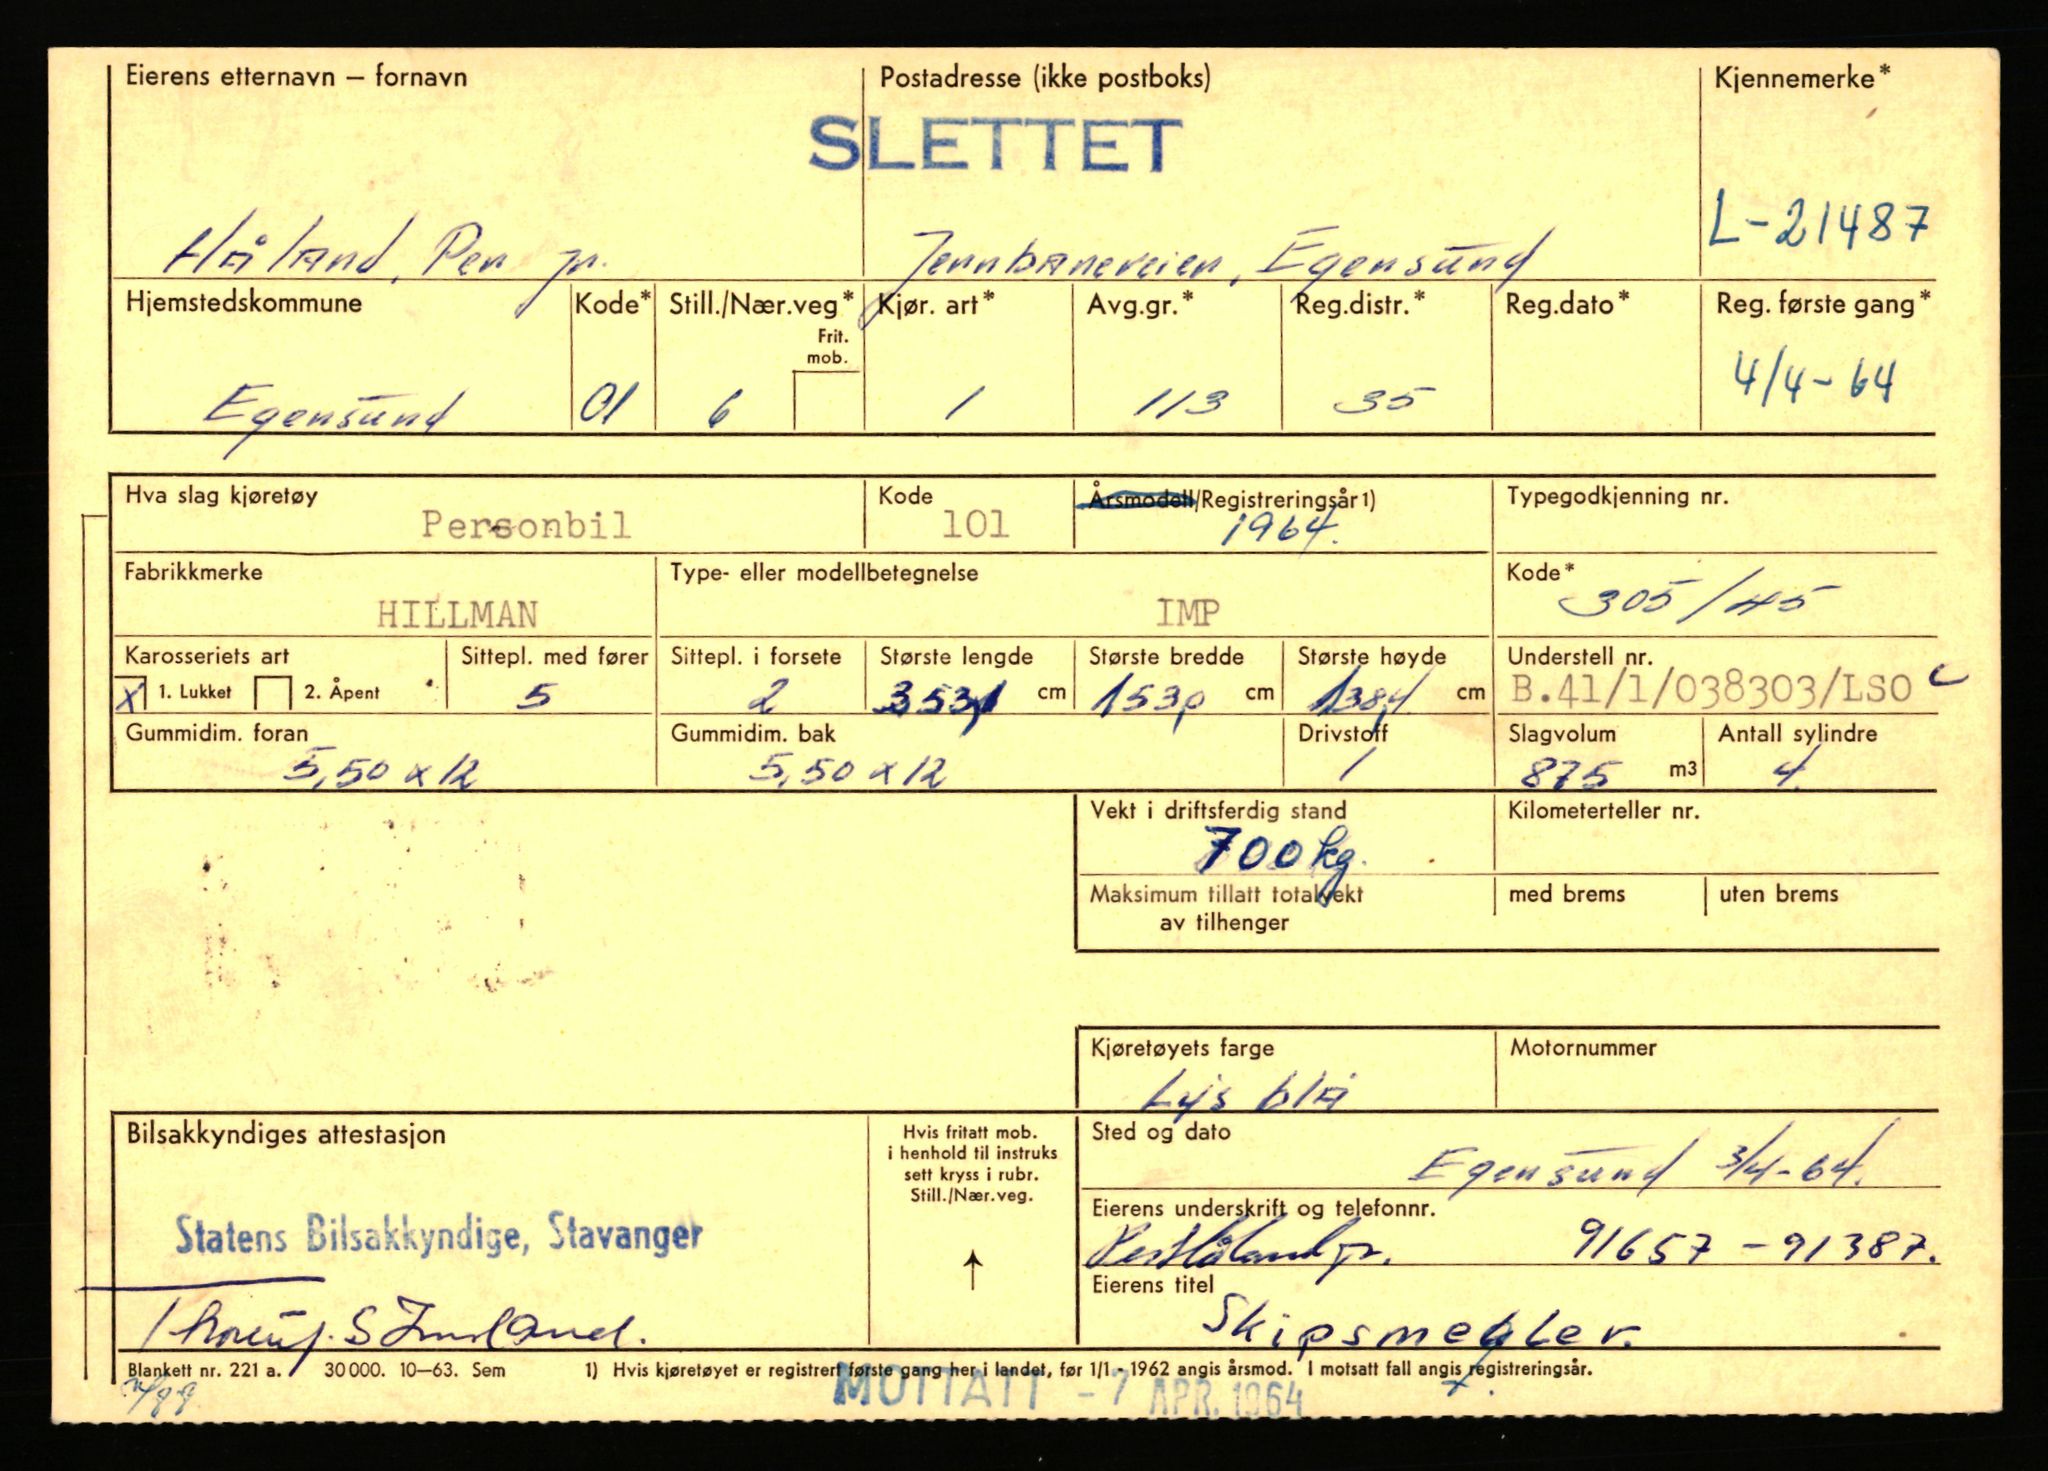 Eierens etternavn – fornavn Postadresse (ikke postboks) Kjennemerke*
SLETTET
Håland, Per jr. Jernbaneveien, Egersund L-21487
Hjemstedskommune Kode* Still./Nær.veg* Kjør. art* Avg.gr.* Reg.distr.* Reg.dato* Reg. første gang*
Frit. mob.
Egersund 01 6 1 113 35 4/4-64
Hva slag kjøretøy Kode Årsmodell/Registreringsår 1) Typegodkjenning nr.
Personbil 101 1964.
Fabrikkmerke Type- eller modellbetegnelse Kode*
HILLMAN IMP 305/45
Karosseriets art Sittepl. med fører Sittepl. i forsete Største lengde Største bredde Største høyde Understell nr.
X 1. Lukket 2. Åpent 5 2 353,1 cm 153,0 cm 138,4 cm B.41/1/038303/LSO
Gummidim. foran Gummidim. bak Drivstoff Slagvolum Antall sylindre
5,50 x 12 5,50 x 12 1 875 m3 4
Vekt i driftsferdig stand Kilometerteller nr.
700 kg.
Maksimum tillatt totalvekt med brems uten brems
av tilhenger
Kjøretøyets farge Motornummer
Lys blå
Bilsakkyndiges attestasjon Hvis fritatt mob. Sted og dato
i henhold til instruks
sett kryss i rubr.
Still./Nær.veg.
Egersund 3/4-64.
Eierens underskrift og telefonnr.
Statens Bilsakkyndige, Stavanger
Per Håland jr. 91657 - 91387.
Eierens titel
Skipsmegler.
Blankett nr. 221 a. 30 000. 10–63. Sem 1) Hvis kjøretøyet er registrert første gang her i landet, før 1/1 - 1962 angis årsmod. I motsatt fall angis registreringsår.
MOTTATT - 7 APR. 1964